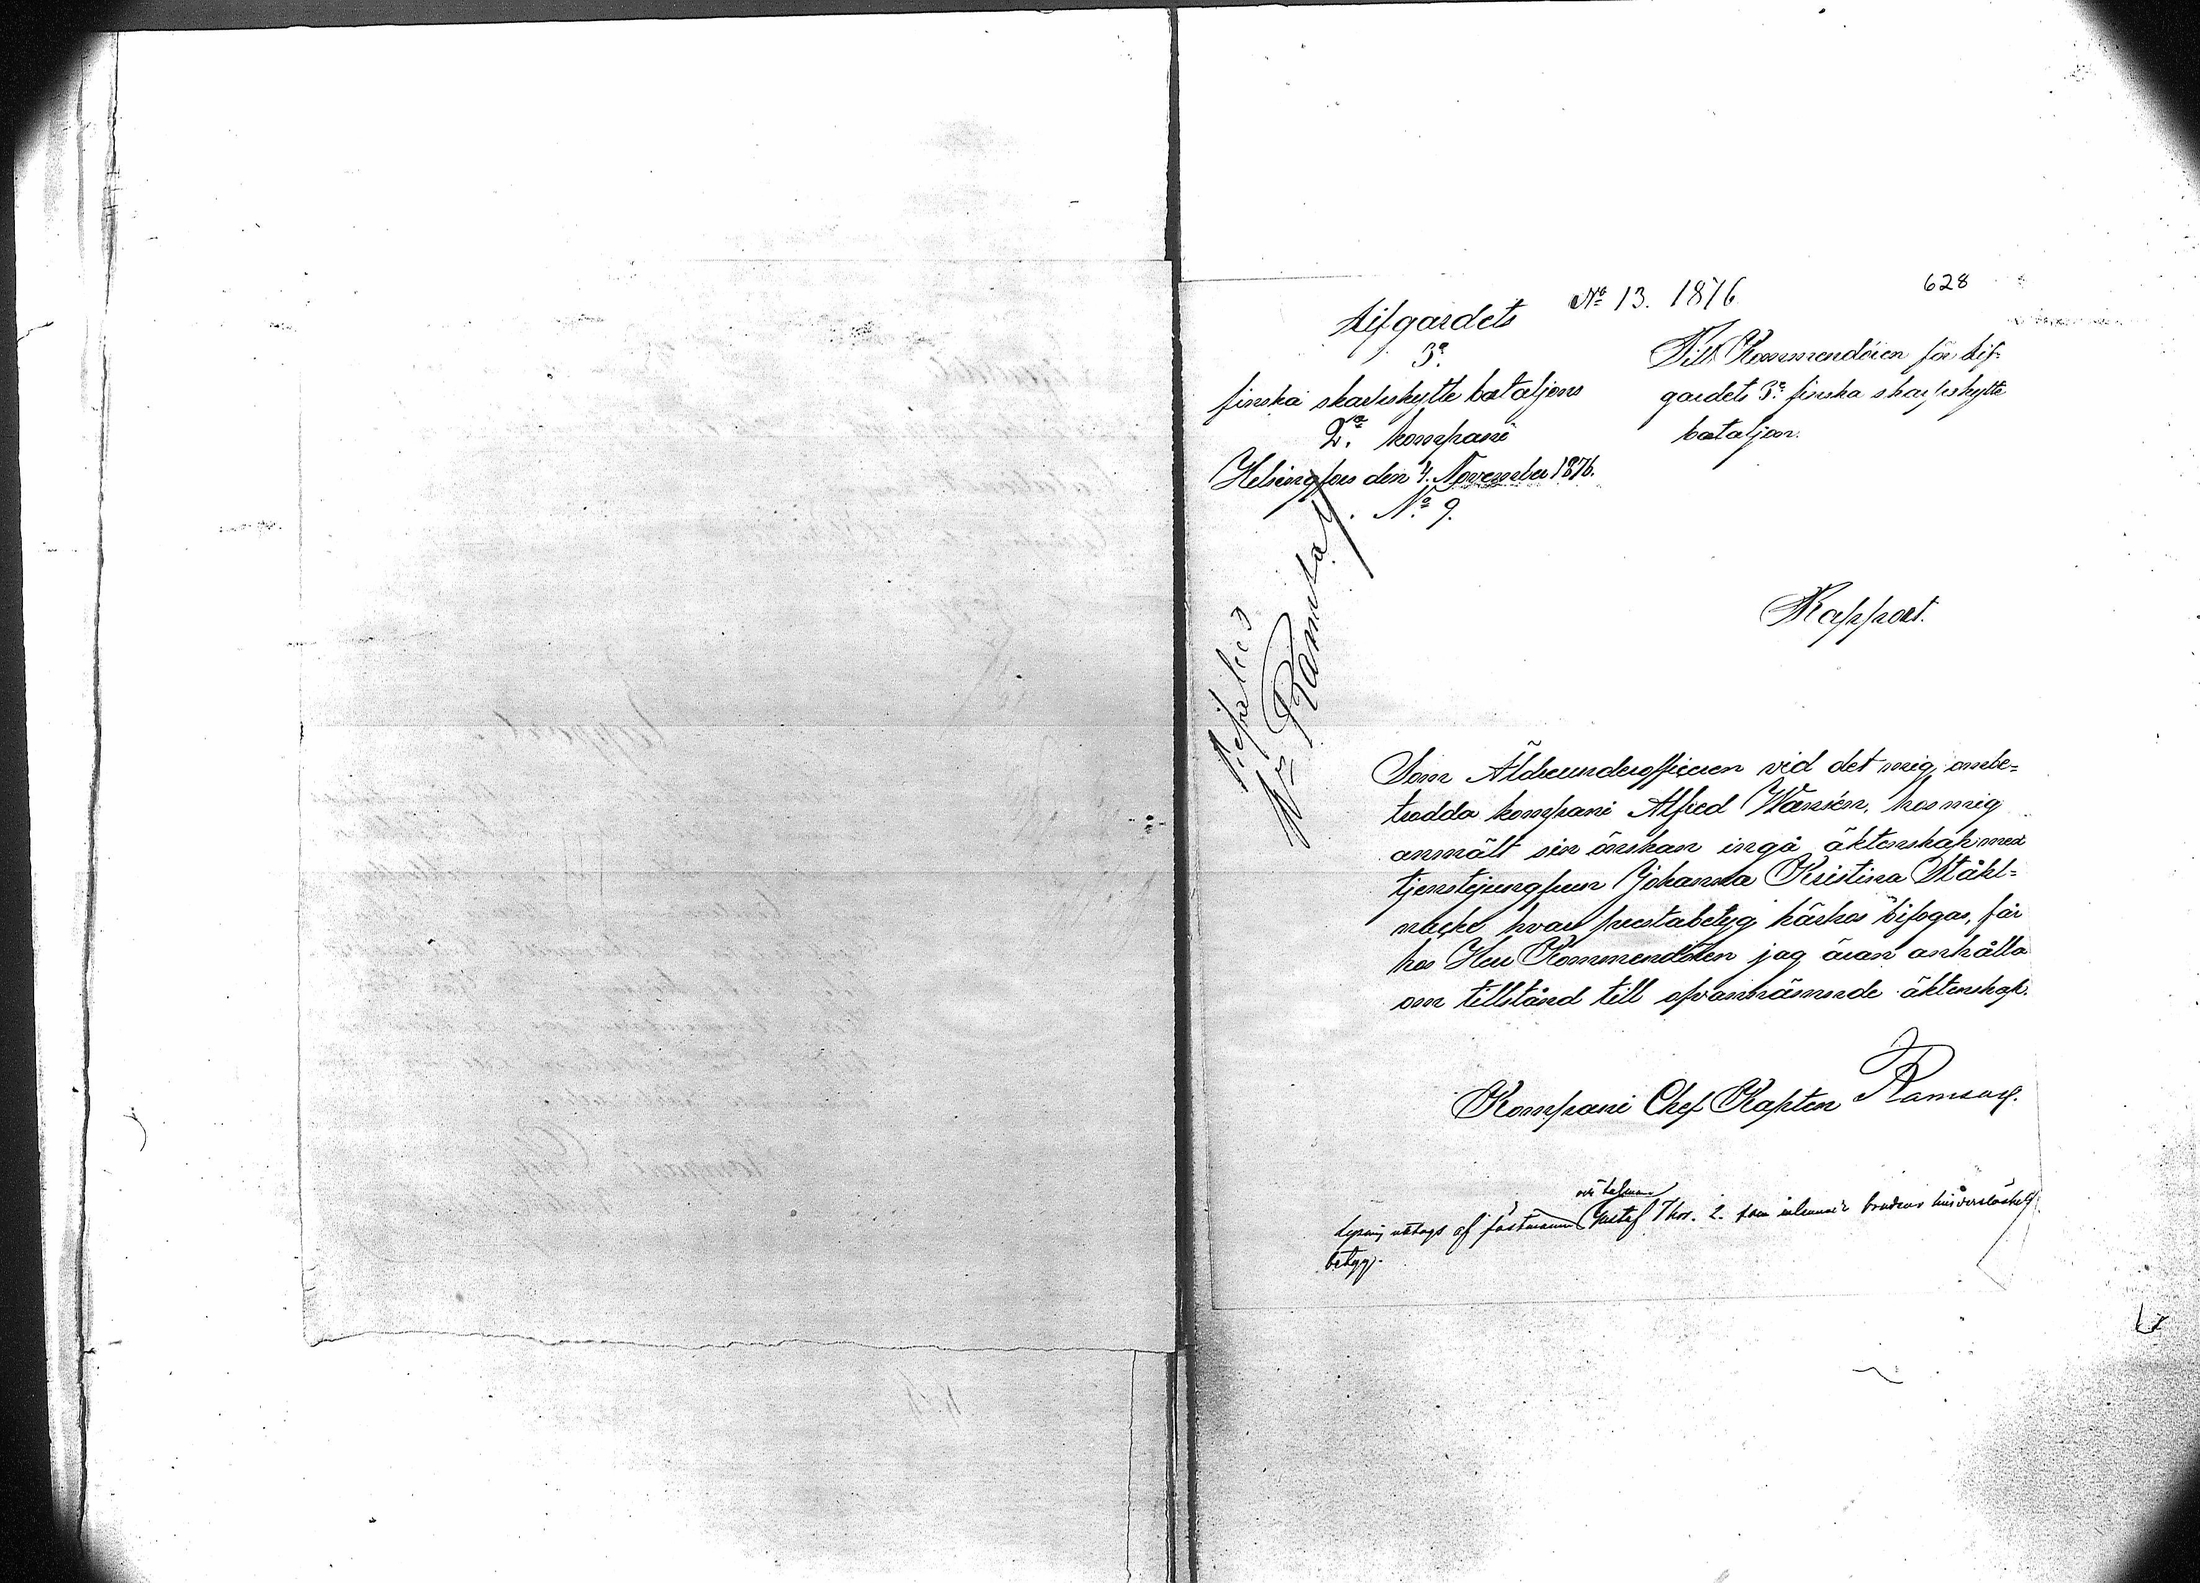 No 13. 1876
628
Lifgardets
3e
finska skarpskytte bataljons
2ra kompani
Helsingfors den 4. November 1876.
No 9.
Till Kommendören för Lif-
gardets 3e finska skarpskytte
bataljon.
Rapport.
Bifalles
Ramsay
Som Äldreunderofficeren vid det mig anbe=
trodda kompani Alfred Warén, hos mig
anmält sin önskan ingå äktenskap med
tjenstejungfrun Johanna Kristina Ståhl=
nacke hvars prestabetyg härhos bifogas, får
hos Herr Kommendören jag äran anhålla
om tillstånd till ofvannämnde äktenskap.
Kompani Chef Kapten Ramsay.
Lysning uttogs af fästmannen Gustaf Thor. 2. som inlemnade brudens
betyg.